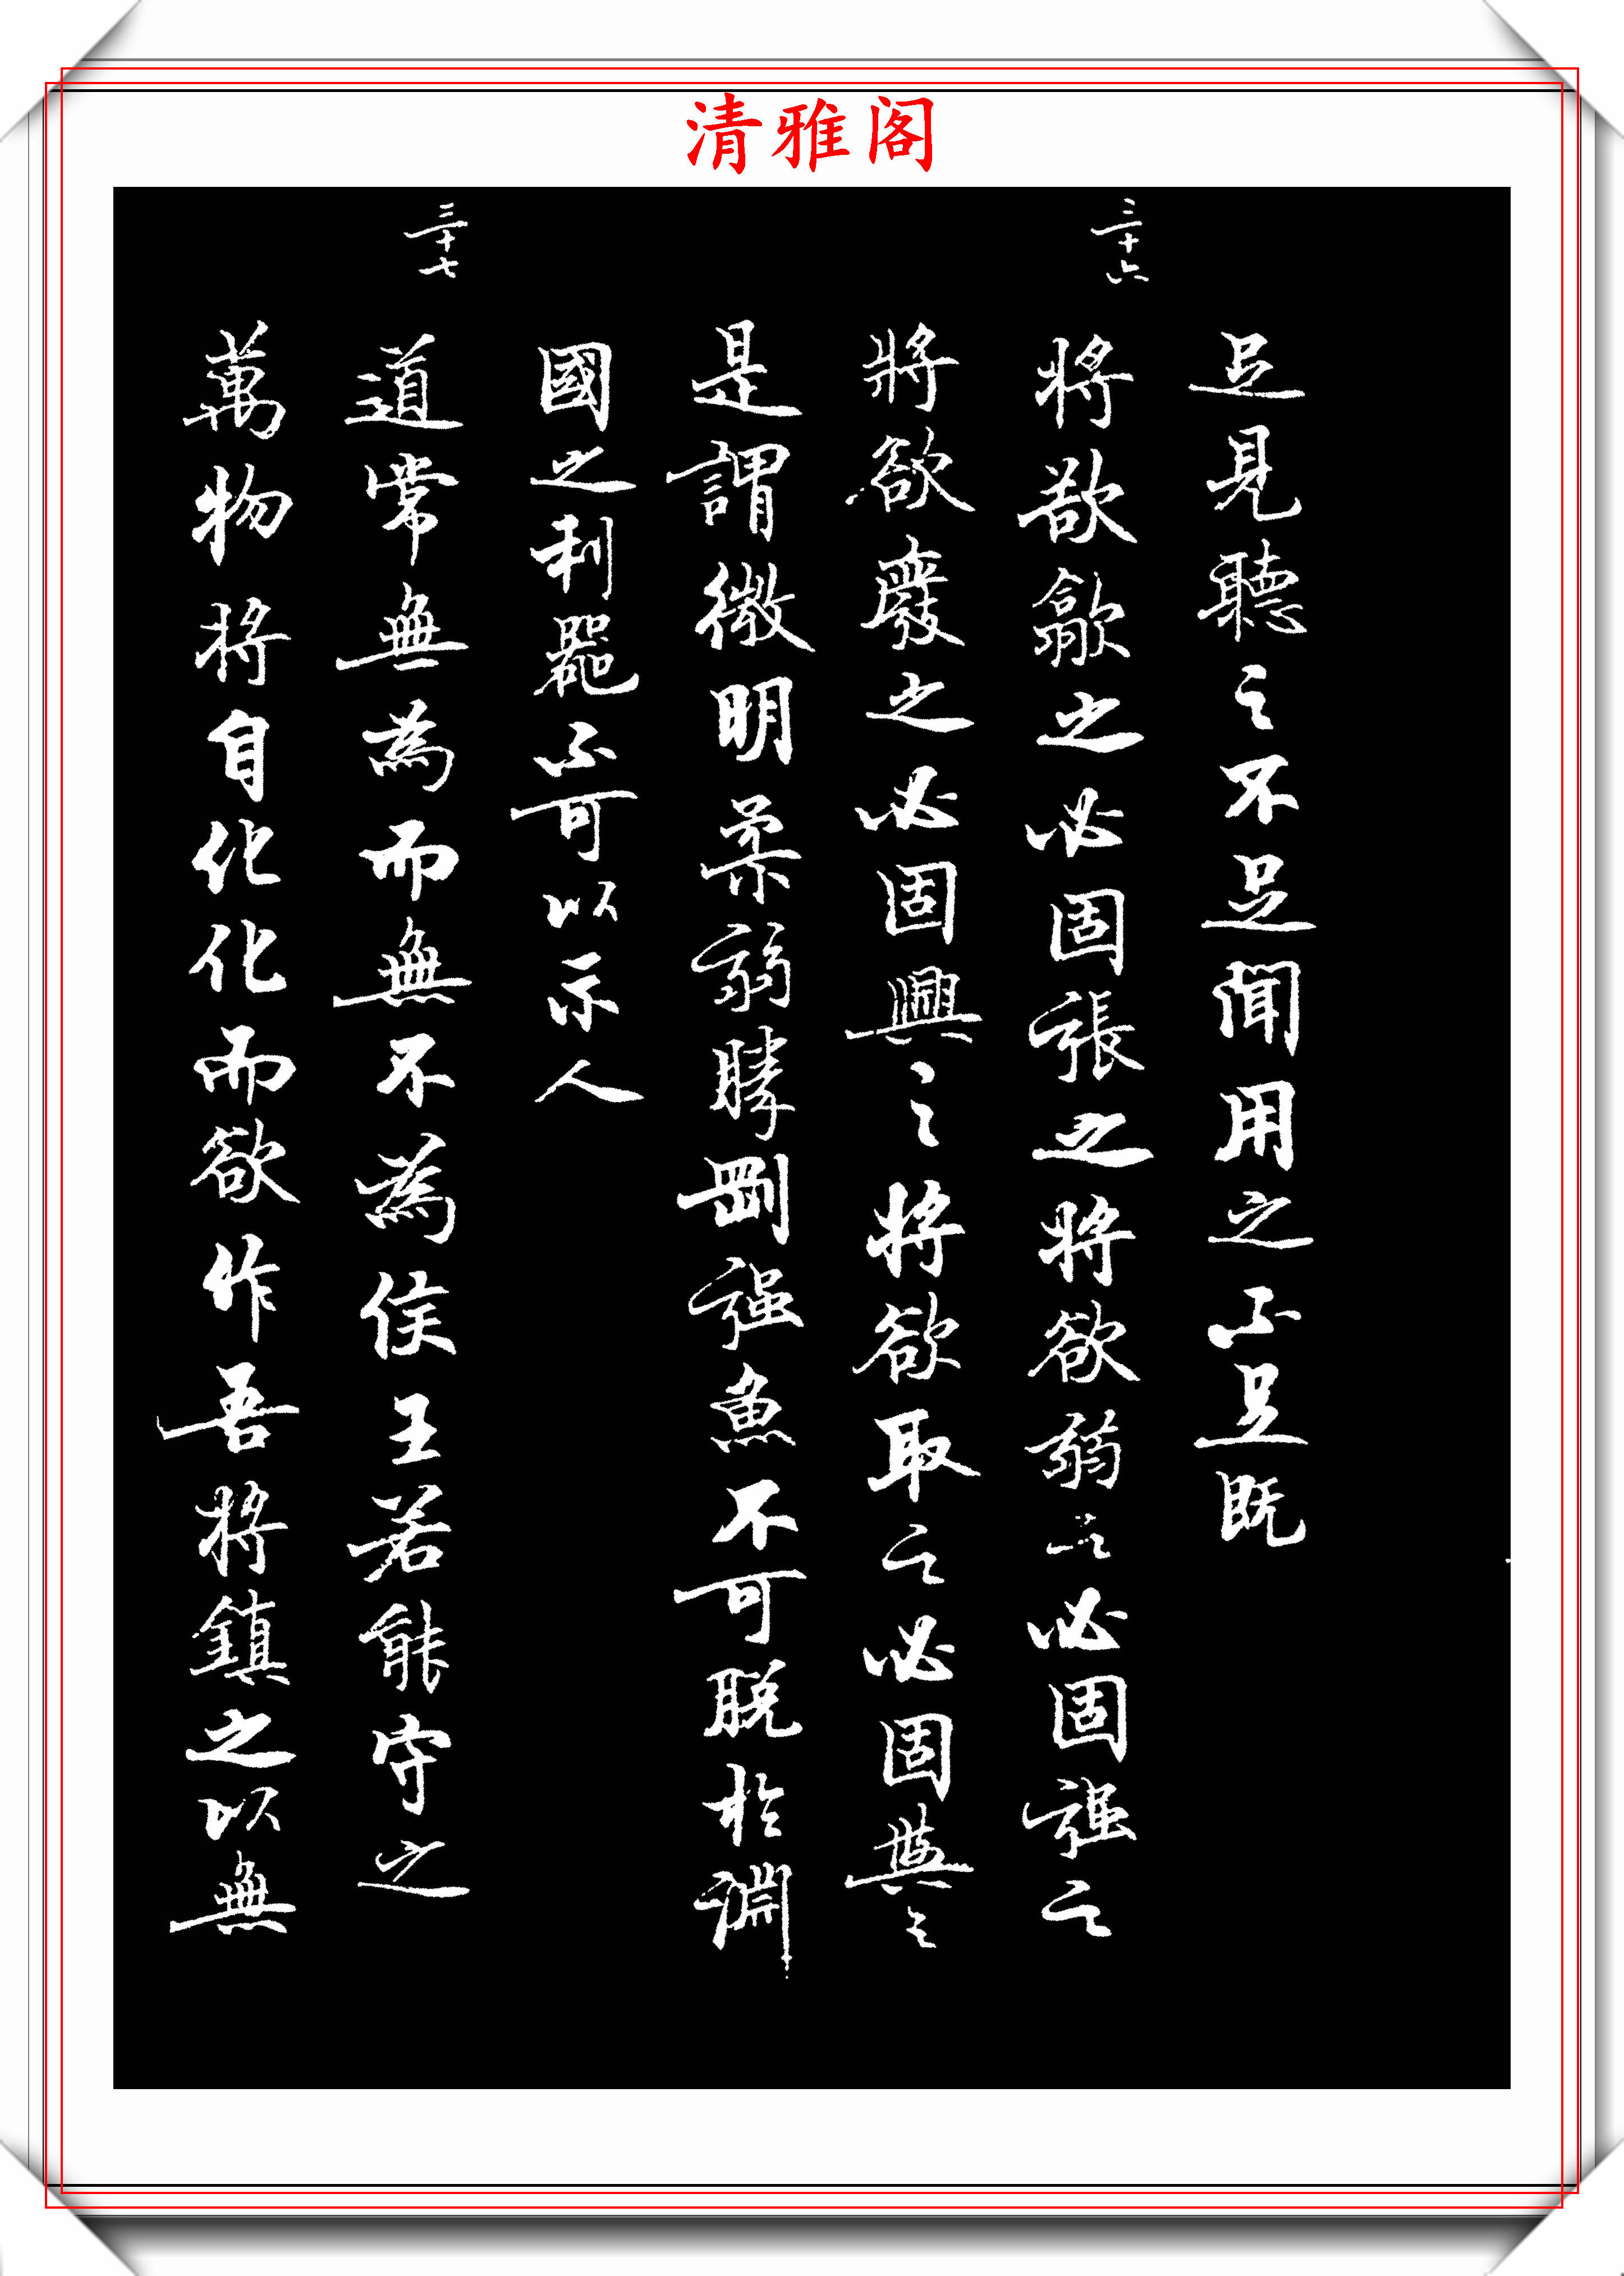 清雅阁
足見聽之不足聞用之不足既
三十六
將欲歙之必固張之將欲弱之必固強之
將欲廢之必固興之將欲取之必固與之
是謂微明柔弱勝剛強魚不可脫於淵
國之利器不可以示人
三十七
道常無為而無不為侯王若能守之
萬物將自化化而欲作吾將鎮之以無